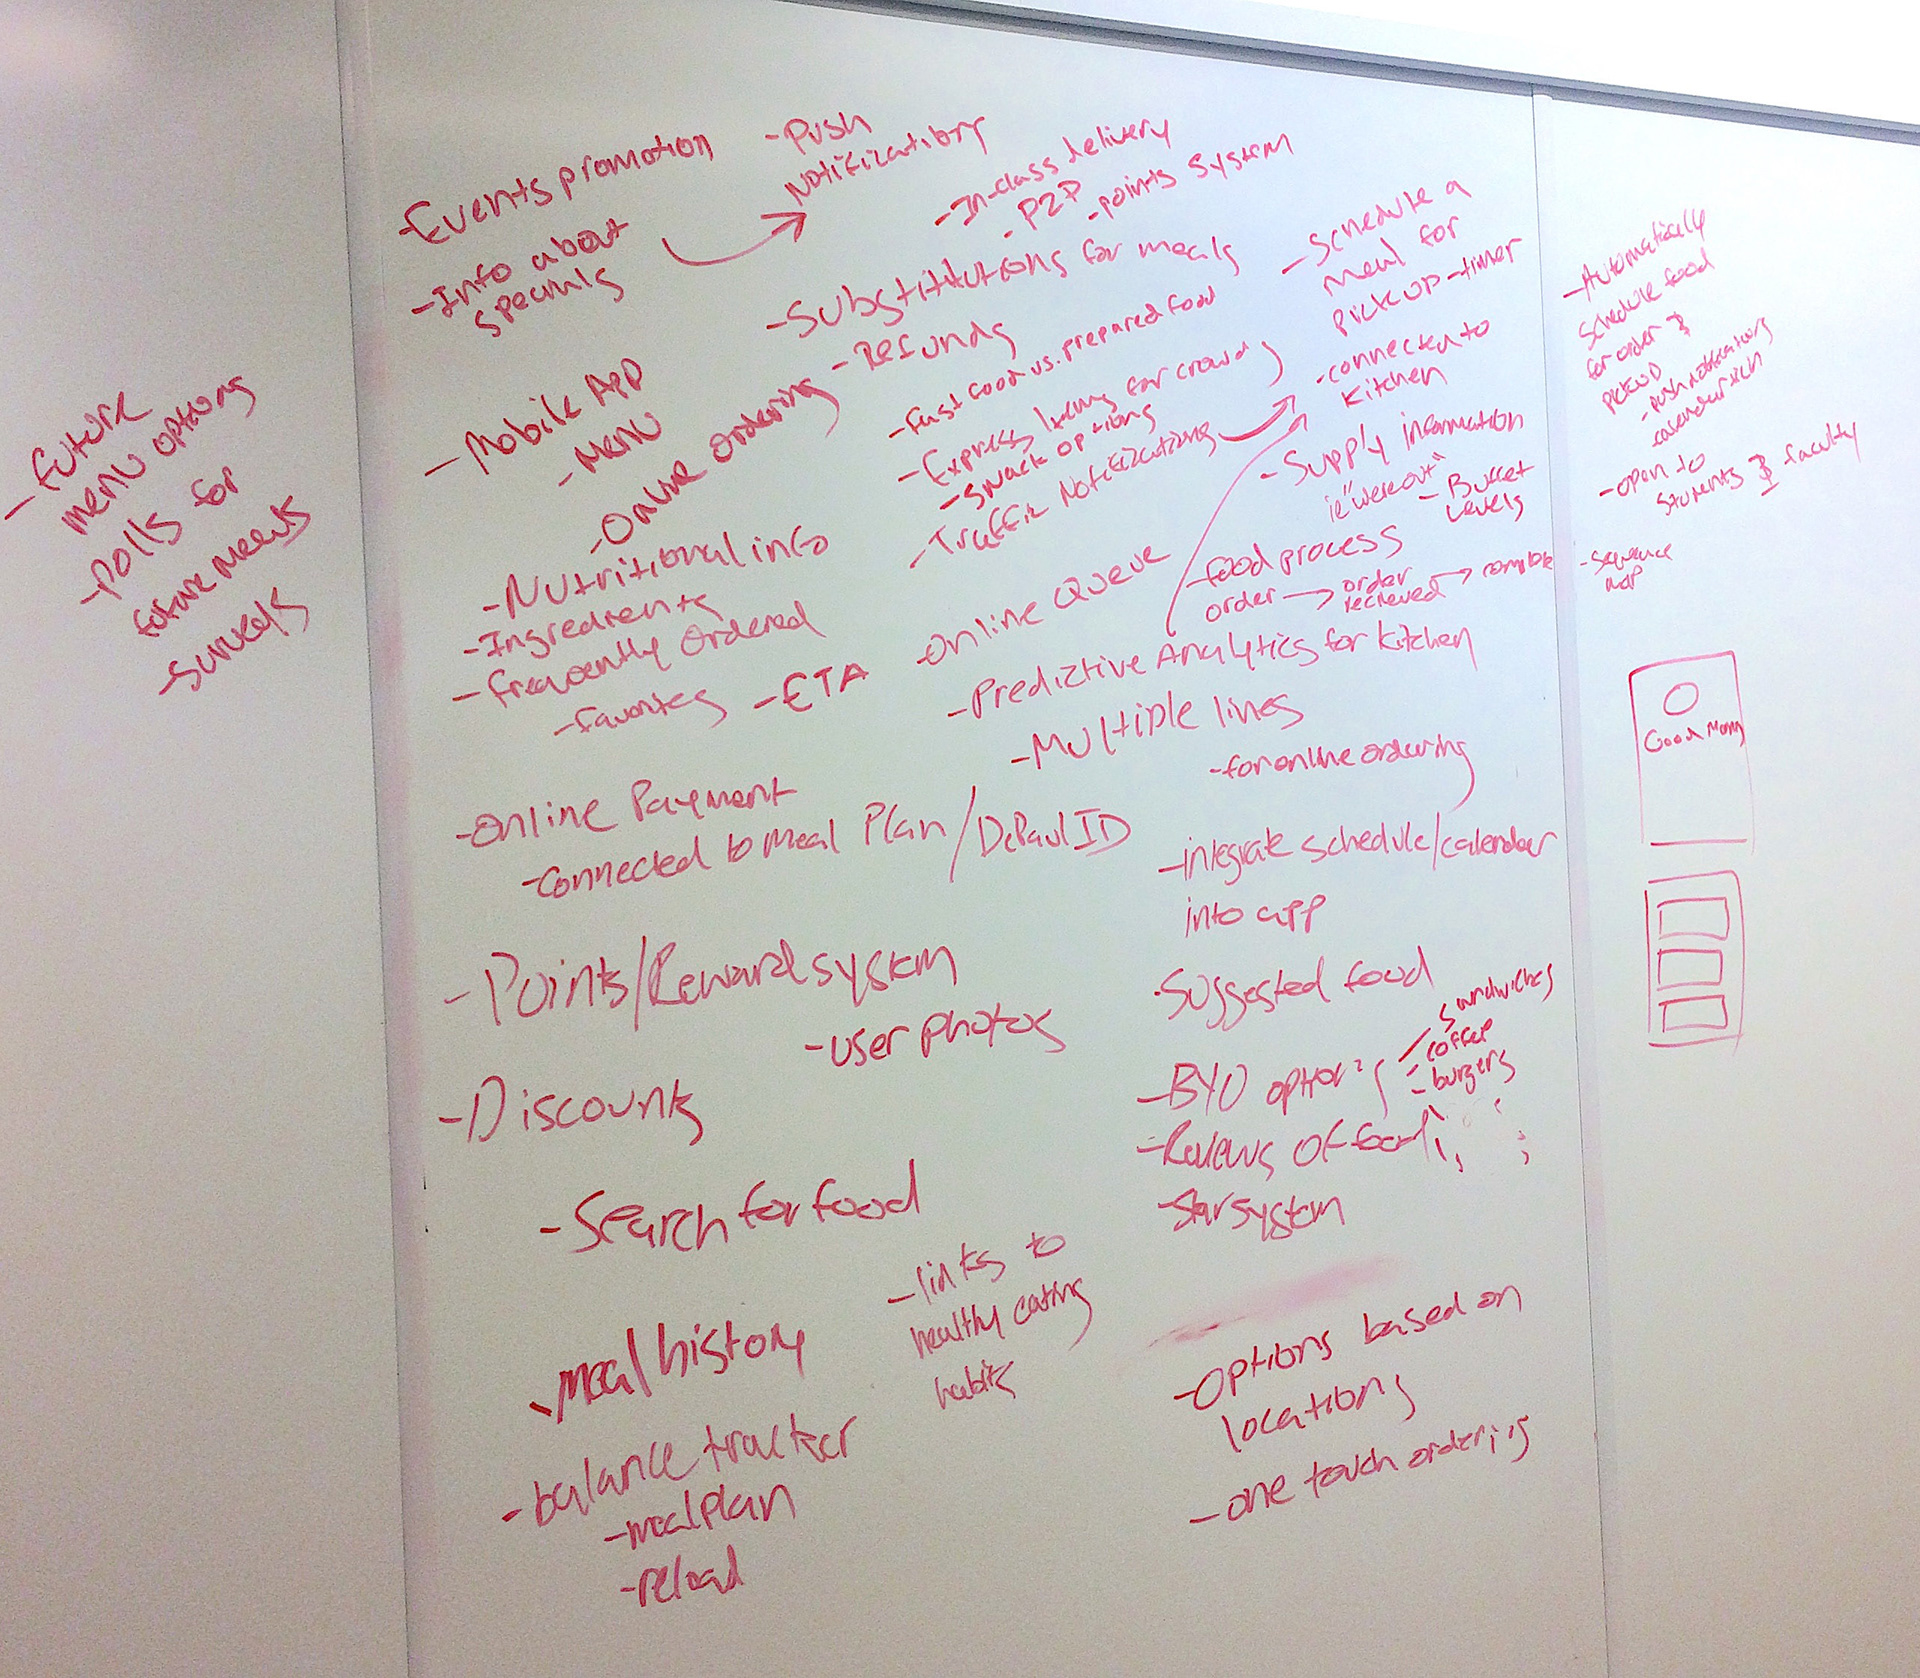 - future
menu options
- Polls for
future meets
- surveys
- Events promotion
- Info about
specials
- Push
Notifications
- In-class delivery
- P2P
- points system
- Substitutions for meals
- Refunds
- Mobile App
- Menu
- Online Ordering
- Fast food vs. prepared food
- Express items for crowds
- snack options
- Traffic Notifications
- Schedule a
meal for
pick up - timer
- connected to
kitchen
- Supply information
ie "we're out"
- Buffet
Levels
- Nutritional info
- Ingredients
- frequently ordered
- favorites
- ETA
- Online Queue
- food process
order → order
recieved → complete
- Predictive Analytics for Kitchen
- Multiple lines
- for online ordering
- online Payment
- connected to meal Plan / DePaul ID
- integrate schedule/calendar
into app
- Points/Reward system
- user photos
- Suggested food
- BYO options
- sandwiches
- coffee
- burgers
- Discounts
- Reviews of food
- Star system
- Search for food
- links to
healthy eating
habits
- meal history
- balance tracker
- meal plan
- reload
- Options based on
locations
- one touch ordering
- Automatically
schedule food
for order &
pickup
- push notifications
calendar
- open to
students & faculty
- sequence
map
Good Morn